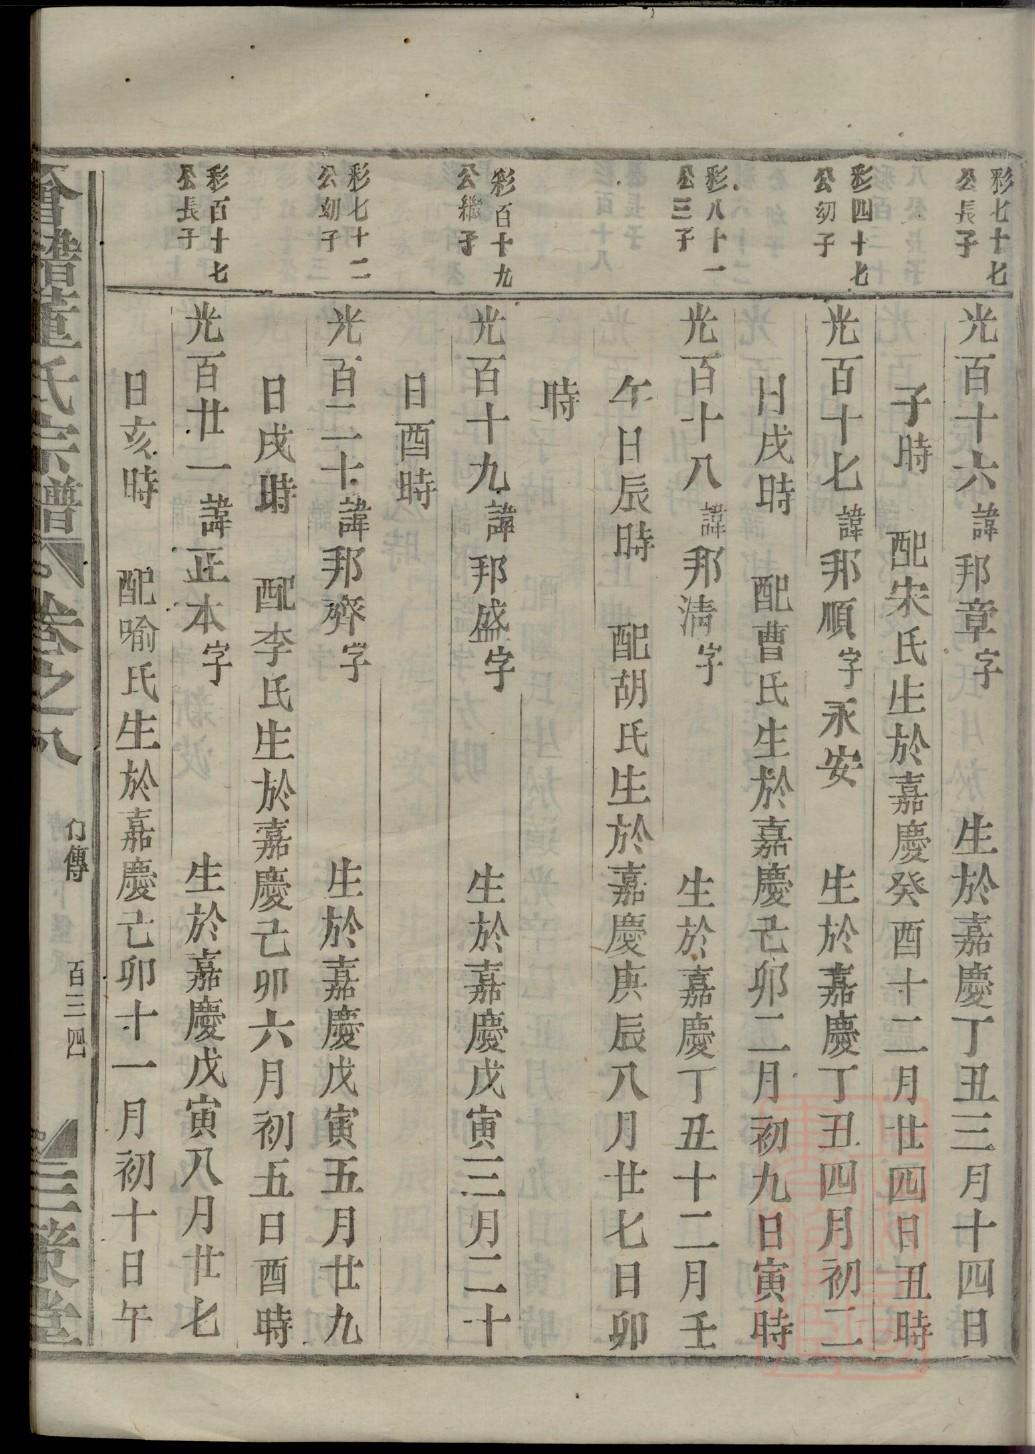 彩七十七
公長子
光百十六諱邦章字 生於嘉慶丁丑三月十四日
子時 配宋氏生於嘉慶癸酉十二月廿四日丑時
彩四十七
公幼子
光百十七諱邦順字永安 生於嘉慶丁丑四月初二
日戌時 配曹氏生於嘉慶己卯二月初九日寅時
彩八十一
公三子
光百十八諱邦淸字 生於嘉慶丁丑十二月壬
午日辰時 配胡氏生於嘉慶庚辰八月廿七日卯
時
彩百十九
公繼子
光百十九諱邦盛字 生於嘉慶戊寅三月二十
日酉時
彩七十二
公幼子
光百二十諱邦齊字 生於嘉慶戊寅五月廿九
日戌時 配李氏生於嘉慶己卯六月初五日酉時
彩百十七
公長子
光百廿一諱正本字 生於嘉慶戊寅八月廿七
日亥時 配喻氏生於嘉慶己卯十一月初十日午
董氏宗譜 卷之八 傳 百三四 三策堂